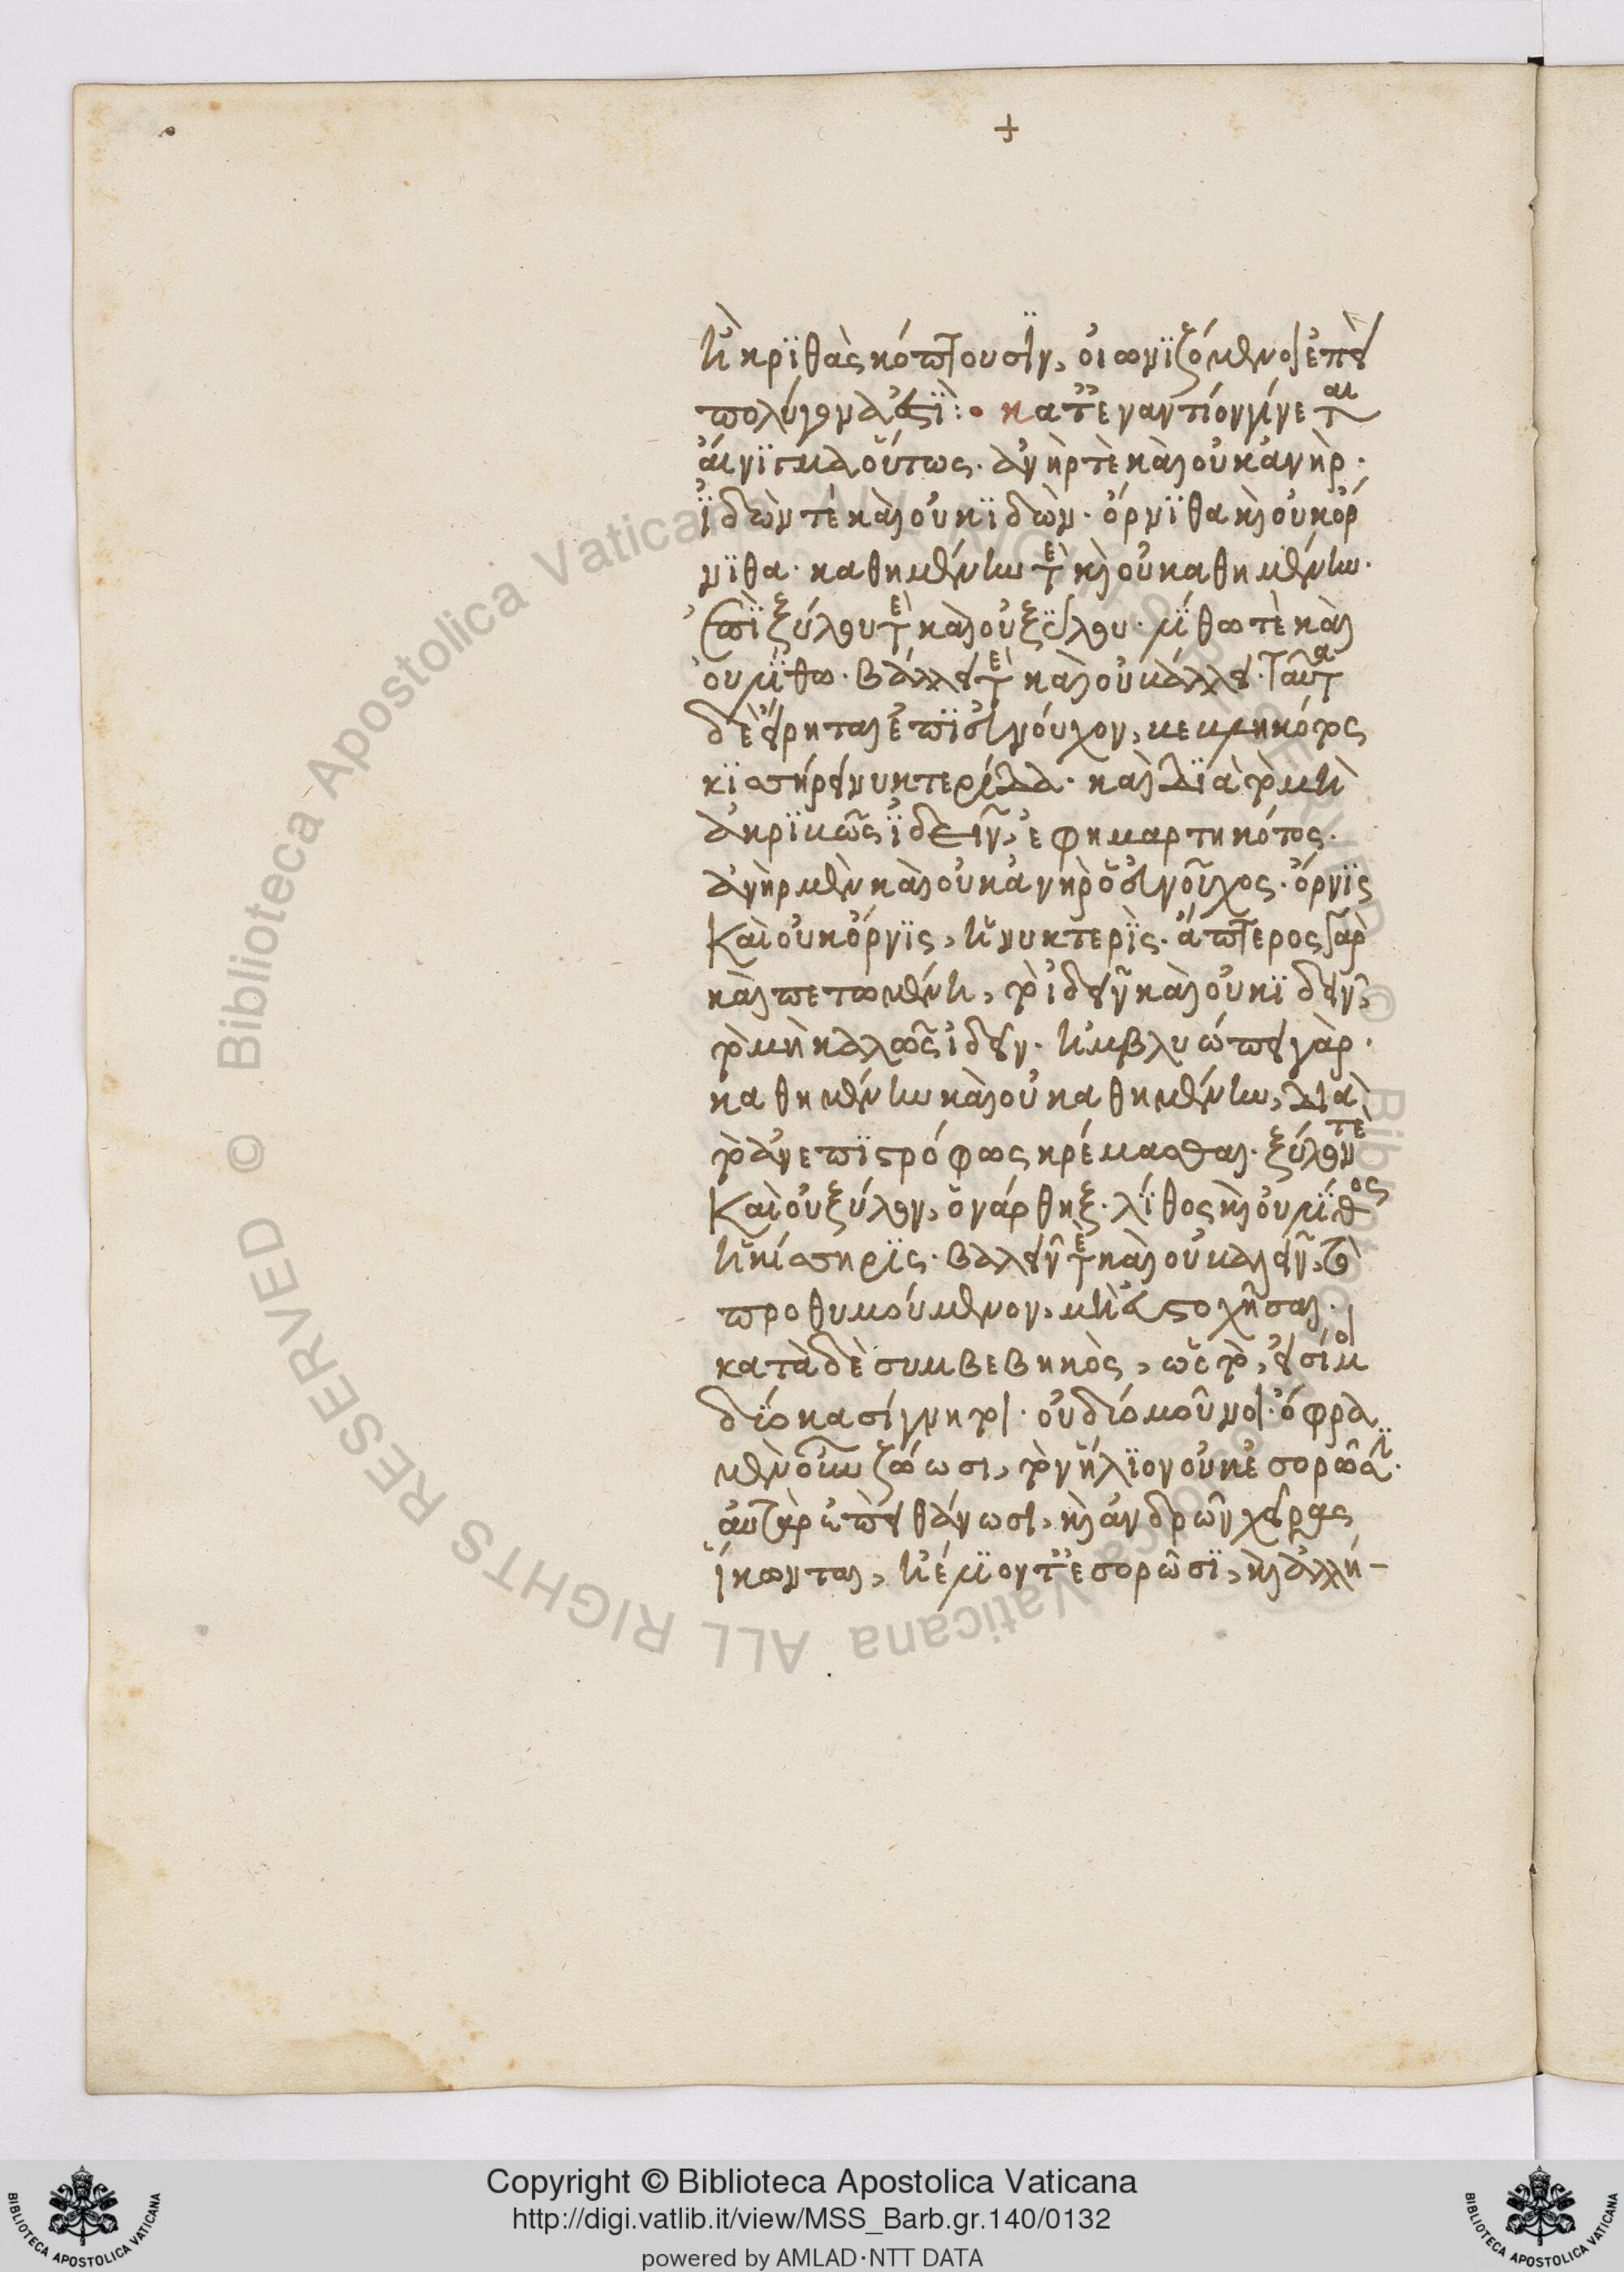 +
ἢ κριθὰς κόπτουσιν, οἰωνιζόμενοι ἐπὶ
πολύγονά ἐστι: κατ' ἐναντίον γίνεται
αἴνιγμα οὕτως. ἀνήρ τε καὶ οὐκ ἀνὴρ.
ἰδών τε καὶ οὐκ ἰδών. ὄρνιθα καὶ οὐκ ὄρ
νιθα. καθημένην τε καὶ οὐ καθημένην.
ἐπὶ ξύλου τε καὶ οὐ ξύλου. λίθω τε καὶ
οὐ λίθω. βάλλει τε καὶ οὐ βάλλει. ταῦτα
δὲ εἴρηται ἐπὶ εὐνούχου, βεβληκότος
κισήρει νυκτερίδα. καὶ διὰ τὸ μὴ
ἀκριβῶς ἰδεῖν, ἐφημαρτηκότος.
ἀνὴρ μὲν καὶ οὐκ ἀνὴρ ὁ εὐνοῦχος. ὄρνις
καὶ οὐκ ὄρνις, ἡ νυκτερὶς. ἄπτερος γὰρ
καὶ πετομένη, τὸ ἰδεῖν καὶ οὐκ ἰδεῖν,
τὸ μὴ καλῶς ἰδεῖν. ἠμβλυώπει γάρ.
καθημένην καὶ οὐ καθημένην, διὰ
τὸ ἀνεπιστρόφως κρέμασθαι. ξύλον τὲ
καὶ οὐ ξύλον, ὁ νάρθηξ. λίθος καὶ οὐ λίθος
ἡ κίσηρις. βαλεῖν τε καὶ οὐ βαλεῖν, τὸ
προθυμούμενον, μὴ εὐστοχῆσαι.
κατὰ δὲ συμβεβηκὸς, ὥσπερ τὸ, εἰσί μοι
δύο κασίγνητοι. οὐ δύο μοῦνοι. ὄφρα
μὲν οὖν ζώωσι, τὸν ἥλιον οὐκ ἐσορῶσιν.
αὐτὰρ ἐπεὶ θάνωσι, καὶ ἀνδρῶν χεῖρας
ἵκωνται, ἠέλιον τ' ἐσορῶσι, καὶ ἀλλή-
Copyright © Biblioteca Apostolica Vaticana
http://digi.vatlib.it/view/MSS_Barb.gr.140/0132
powered by AMLAD·NTT DATA
BIBLIOTECA APOSTOLICA VATICANA
BIBLIOTECA APOSTOLICA VATICANA
© Biblioteca Apostolica Vaticana ALL RIGHTS RESERVED